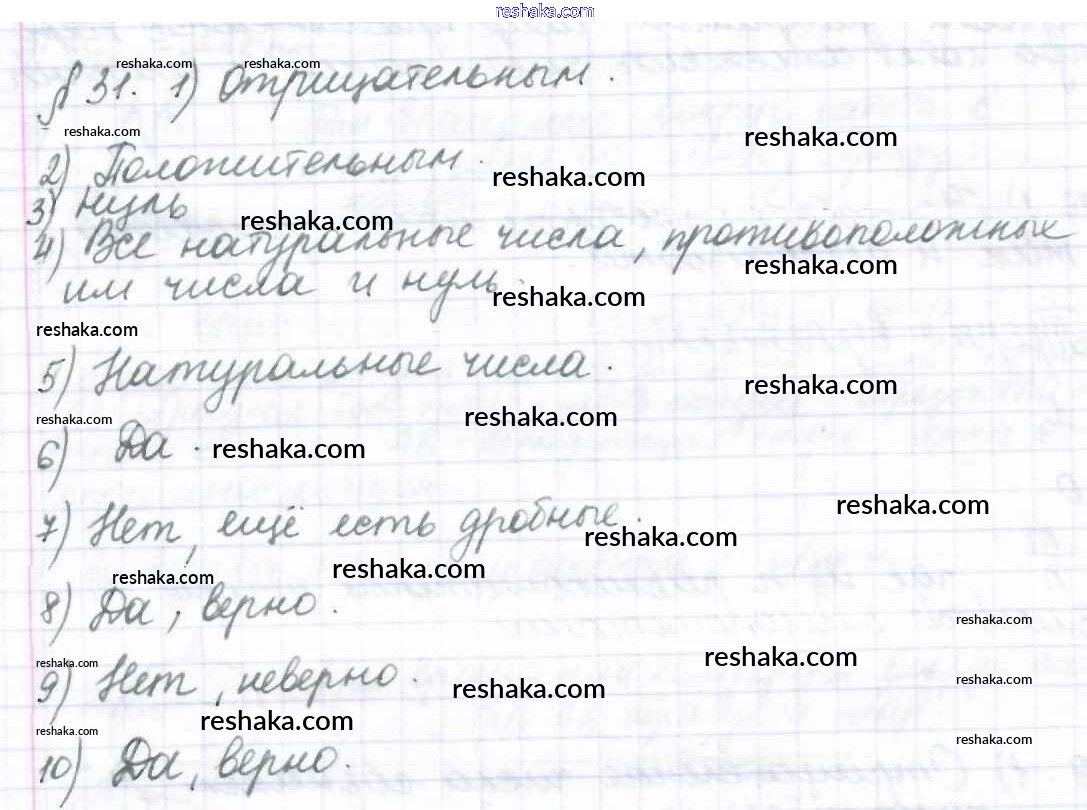 reshaka.com
reshaka.com reshaka.com
§ 31. 1) Отрицательным.
reshaka.com reshaka.com
2) Положительным.
reshaka.com
3) нуль
reshaka.com
4) Все натуральные числа, противоположные
reshaka.com
им числа и нуль.
reshaka.com
reshaka.com
5) Натуральные числа.
reshaka.com
reshaka.com reshaka.com
6) Да. reshaka.com
reshaka.com
7) Нет, ещё есть дробные.
reshaka.com
reshaka.com reshaka.com
8) Да, верно.
reshaka.com
reshaka.com reshaka.com
9) Нет, неверно.
reshaka.com reshaka.com
reshaka.com reshaka.com
reshaka.com
10) Да, верно.